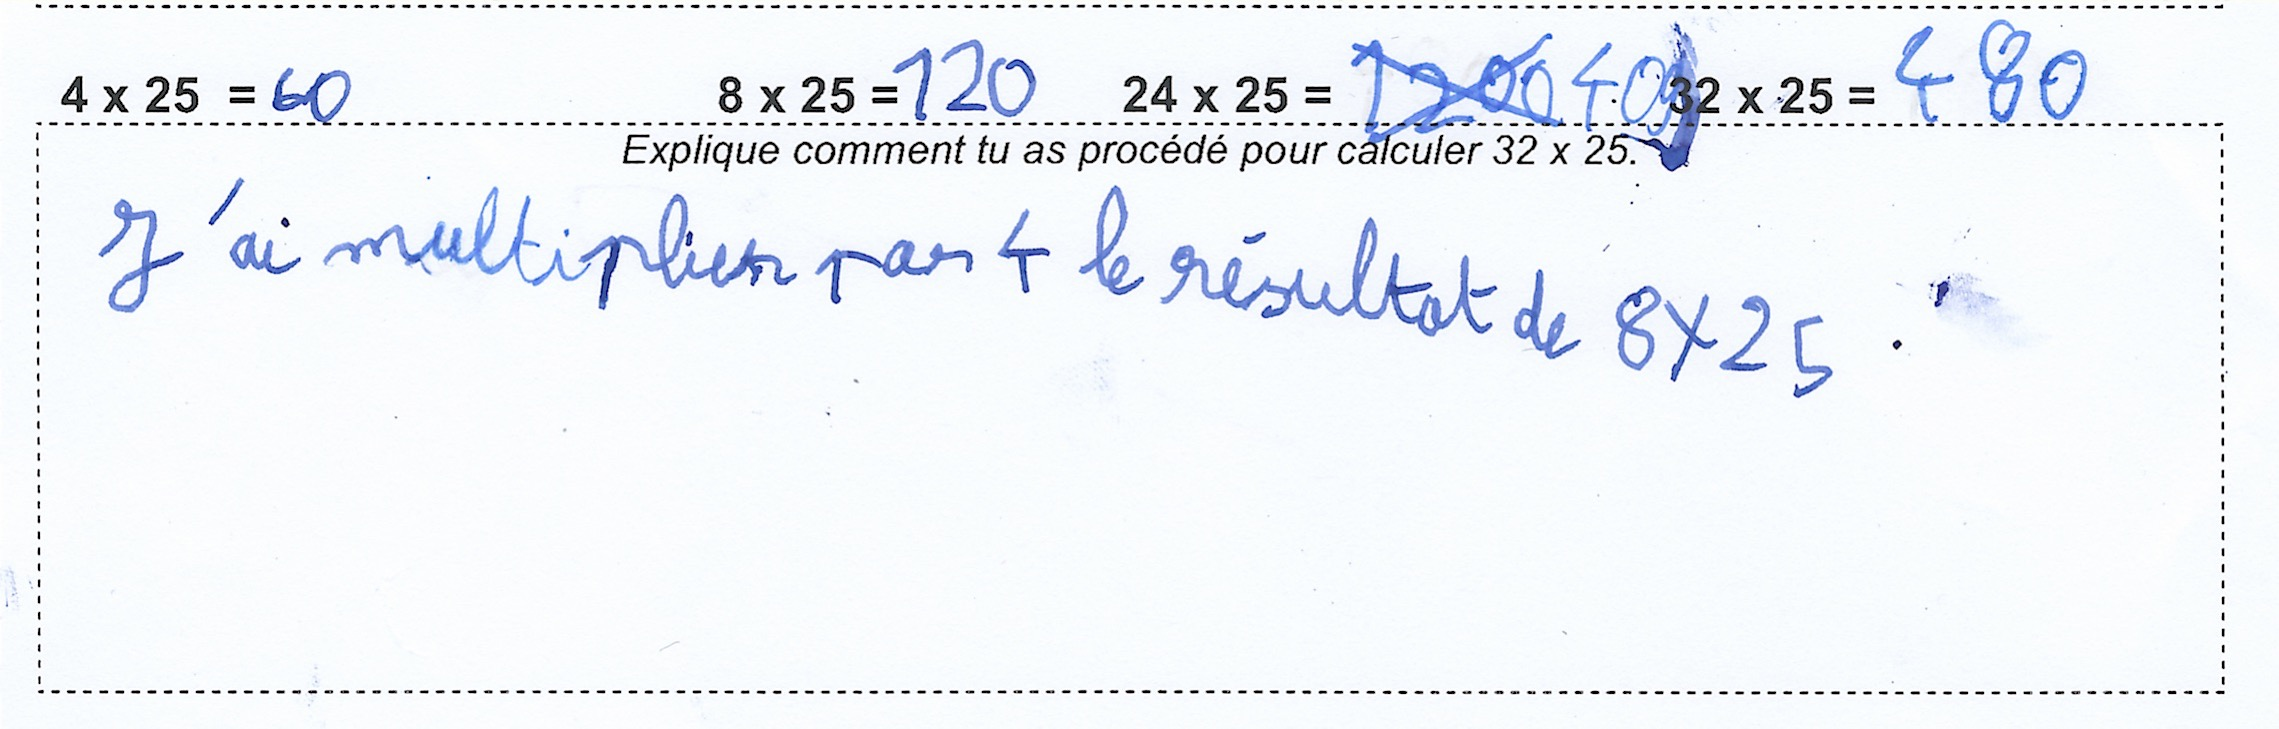 4 x 25 = 60 8 x 25 = 120 24 x 25 = 1200 40 32 x 25 = 480
Explique comment tu as procédé pour calculer 32 x 25.
J'ai multiplier par 4 le résultat de 8x25.